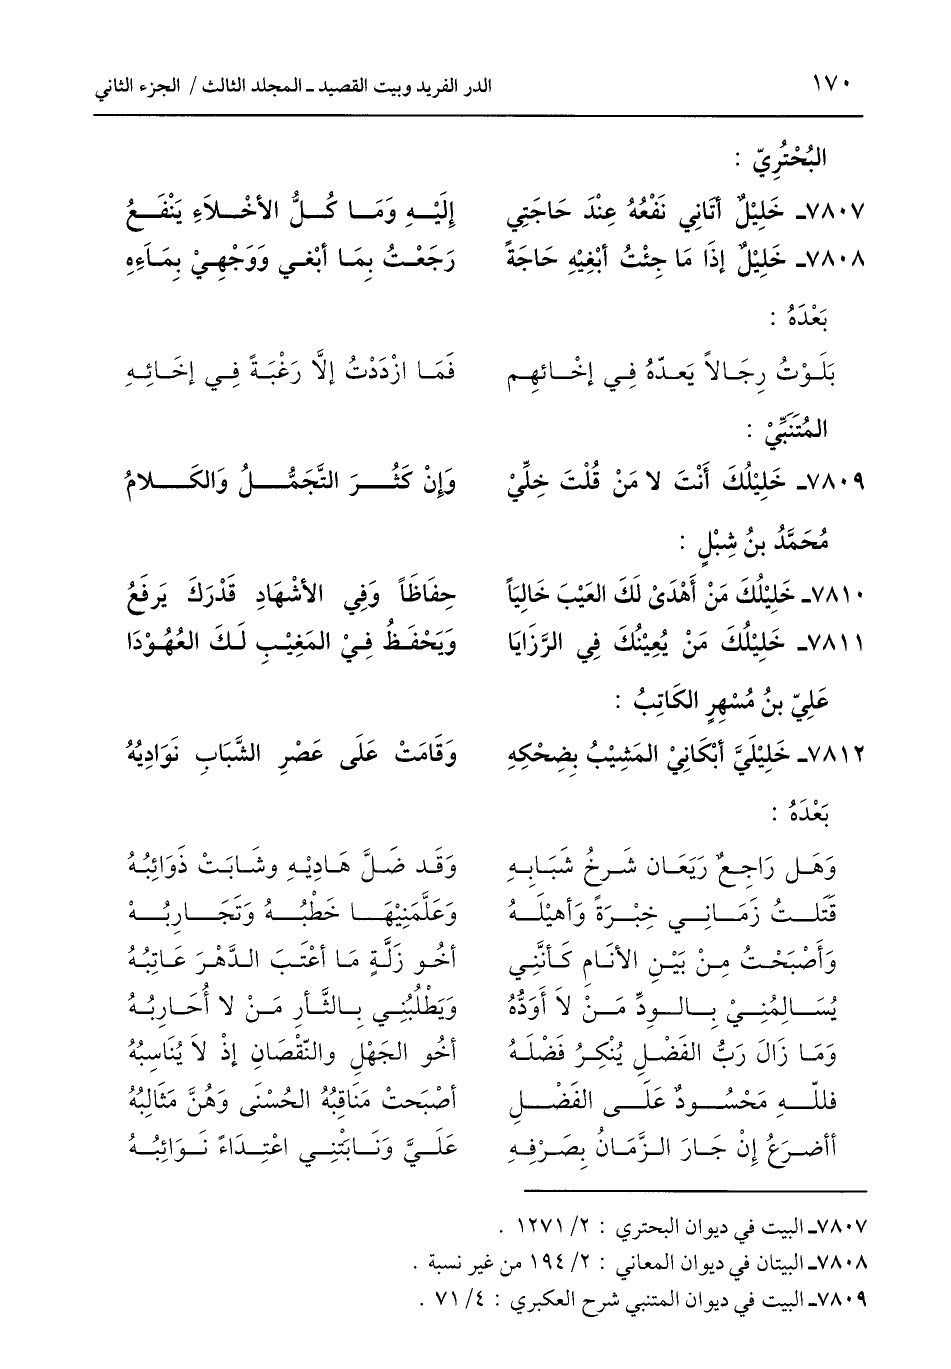 ١٧٠ الدر الفريد وبيت القصيد ـ المجلد الثالث / الجزء الثاني
البُحْتُرِيّ :
٧٨٠٧ـ خَلِيْلٌ أتَانِي نَفْعُهُ عِنْدَ حَاجَتِي إلَيْهِ وَمَا كُلُّ الأخْلاَءِ يَنْفَعُ
٧٨٠٨ـ خَلِيْلٌ إذَا مَا جِئْتُ أبْغِيْهِ حَاجَةً رَجَعْتُ بِمَا أبْغي وَوَجْهِيْ بِمَاءِهِ
بَعْدَهُ :
بَلَوْتُ رِجَالاً بَعدّهُ فِي إخْائهِم فَمَا ازْدَدْتُ إلَّا رَغْبَةً فِي إخَائِهِ
المُتَنَبِّيْ :
٧٨٠٩ـ خَلِيْلُكَ أَنْتَ لا مَنْ قُلْتَ خِلِّيْ وَإنْ كَثُرَ التَّجَمُّلُ وَالكَلامُ
مُحَمَّدُ بنُ شِبْلٍ :
٧٨١٠ـ خَلِيْلُكَ مَنْ أَهْدَىْ لَكَ العَيْبَ خَالِيَاً حِفَاظَاً وَفِي الأشْهَادِ قَدْرَكَ يَرفَعُ
٧٨١١ـ خَلِيْلُكَ مَنْ يُعِيْنُكَ فِي الرَّزَايَا وَيَحْفَظُ فِيْ المَغِيْبِ لَكَ العُهُوْدَا
عَلِيّ بنُ مُسْهِرٍ الكَاتِبُ :
٧٨١٢ـ خَلِيْلَيَّ أبْكَانِيْ المَشِيْبُ بِضِحْكِهِ وَقَامَتْ عَلَى عَصْرِ الشَّبَابِ نَوَادِبُهُ
بَعْدَهُ :
وَهَل رَاجِعٌ رَيَعَان شَرخُ شَبَابِهِ وَقَد ضَلَّ هَادِيْهِ وشَابَتْ ذَوَائِبُهُ
قَتَلتُ زَمَانِي خِبْرَةً وَأهيْلَهُ وَعَلَّمَنِيْهَا خَطْبُهُ وَتَجَارِبُهْ
وَأَصْبَحْتُ مِنْ بَيْنِ الأنَامِ كَأنَّنِي أخُو زَلَّةٍ مَا أعْتَبَ الدَّهْرَ عَاتِبُهُ
يُسَالِمُنِيْ بِالوِدِّ مَنْ لاَ أوَدُّهُ وَيَطْلُبُنِي بِالثَّأرِ مَنْ لا أُحَارِبُهُ
وَمَا زَالَ رَبُّ الفَضْلِ يُنْكِرُ فَضْلَهُ أخُو الجَهْلِ والنّقْصَانِ إذْ لاَ يُنَاسِبُهُ
فللّهِ مَحْسُودٌ عَلَى الفَضْلِ أصْبَحتْ مَنَاقِبُهُ الحُسْنَى وَهُنَّ مَثَالِبُهُ
أأضرَعُ إنْ جَارَ الزَّمَانُ بِصَرْفِهِ عَلَيَّ وَنَابَتْنِي اعْتِدَاءً نَوَائِبُهُ
٧٨٠٧ـ البيت في ديوان البحتري : ٢/ ١٢٧١ .
٧٨٠٨ـ البيتان في ديوان المعاني : ٢/ ١٩٤ من غير نسبة .
٧٨٠٩ـ البيت في ديوان المتنبي شرح العكبري : ٤/ ٧١ .